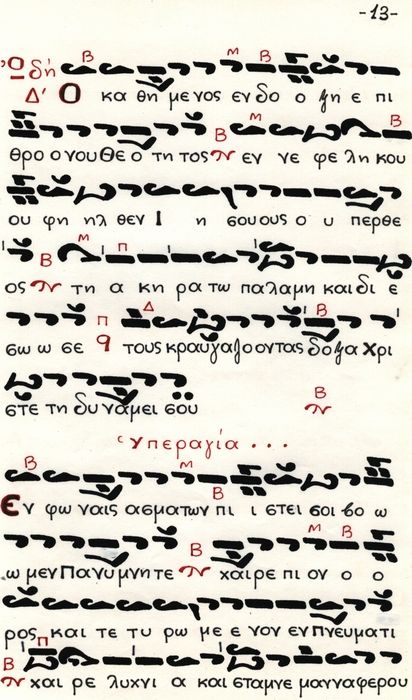 -13-
Ὠδή
Δ' Ο κα θη με νος εν δο ο ξη ε πι
θρο ο νου Θε ο τη τος εν νε φε λη κου
ου φη ηλ θεν Ι η σου ους ο υ περ θε
ος τη α κη ρα τω πα λα μη και δι ε
σω ω σε τους κραυ γα ζο ον τας δο ξα Χρι
στε τη δυ να μει σου
Ὑπεραγία ...
Εν φω ναις ασ μα των πι ι στει σοι βο ω
ω μεν Παν υ μνη τε χαι ρε πι ον ο ο
ρος και τε τυ ρω με ε νον εν Πνευ μα τι
χαι ρε λυ χνι α και στα μνε μαν να φε ρου